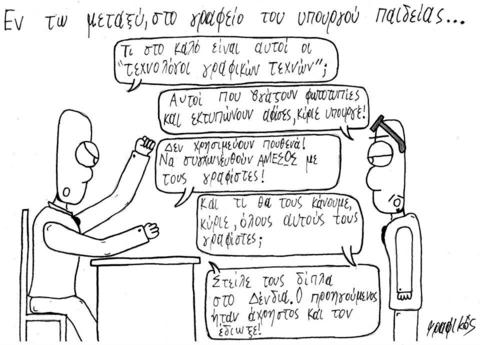 Εν τω μεταξύ, στο γραφείο του υπουργού παιδείας...
Τι στο καλό είναι αυτοί οι
"τεχνολόγοι γραφικών τεχνών";
Αυτοί που βγάζουν φωτοτυπίες
και εκτυπώνουν αφίσες, κύριε υπουργέ!
Δεν χρησιμεύουν πουθενά!
Να συγχωνευθούν ΑΜΕΣΩΣ με
τους γραφίστες!
Και τι θα τους κάνουμε,
κύριε, όλους αυτούς τους
γραφίστες;
Στείλε τους δίπλα
στο Δένδια. Ο προηγούμενος
ήταν άχρηστος και τον
έδιωξε!
γραφικός